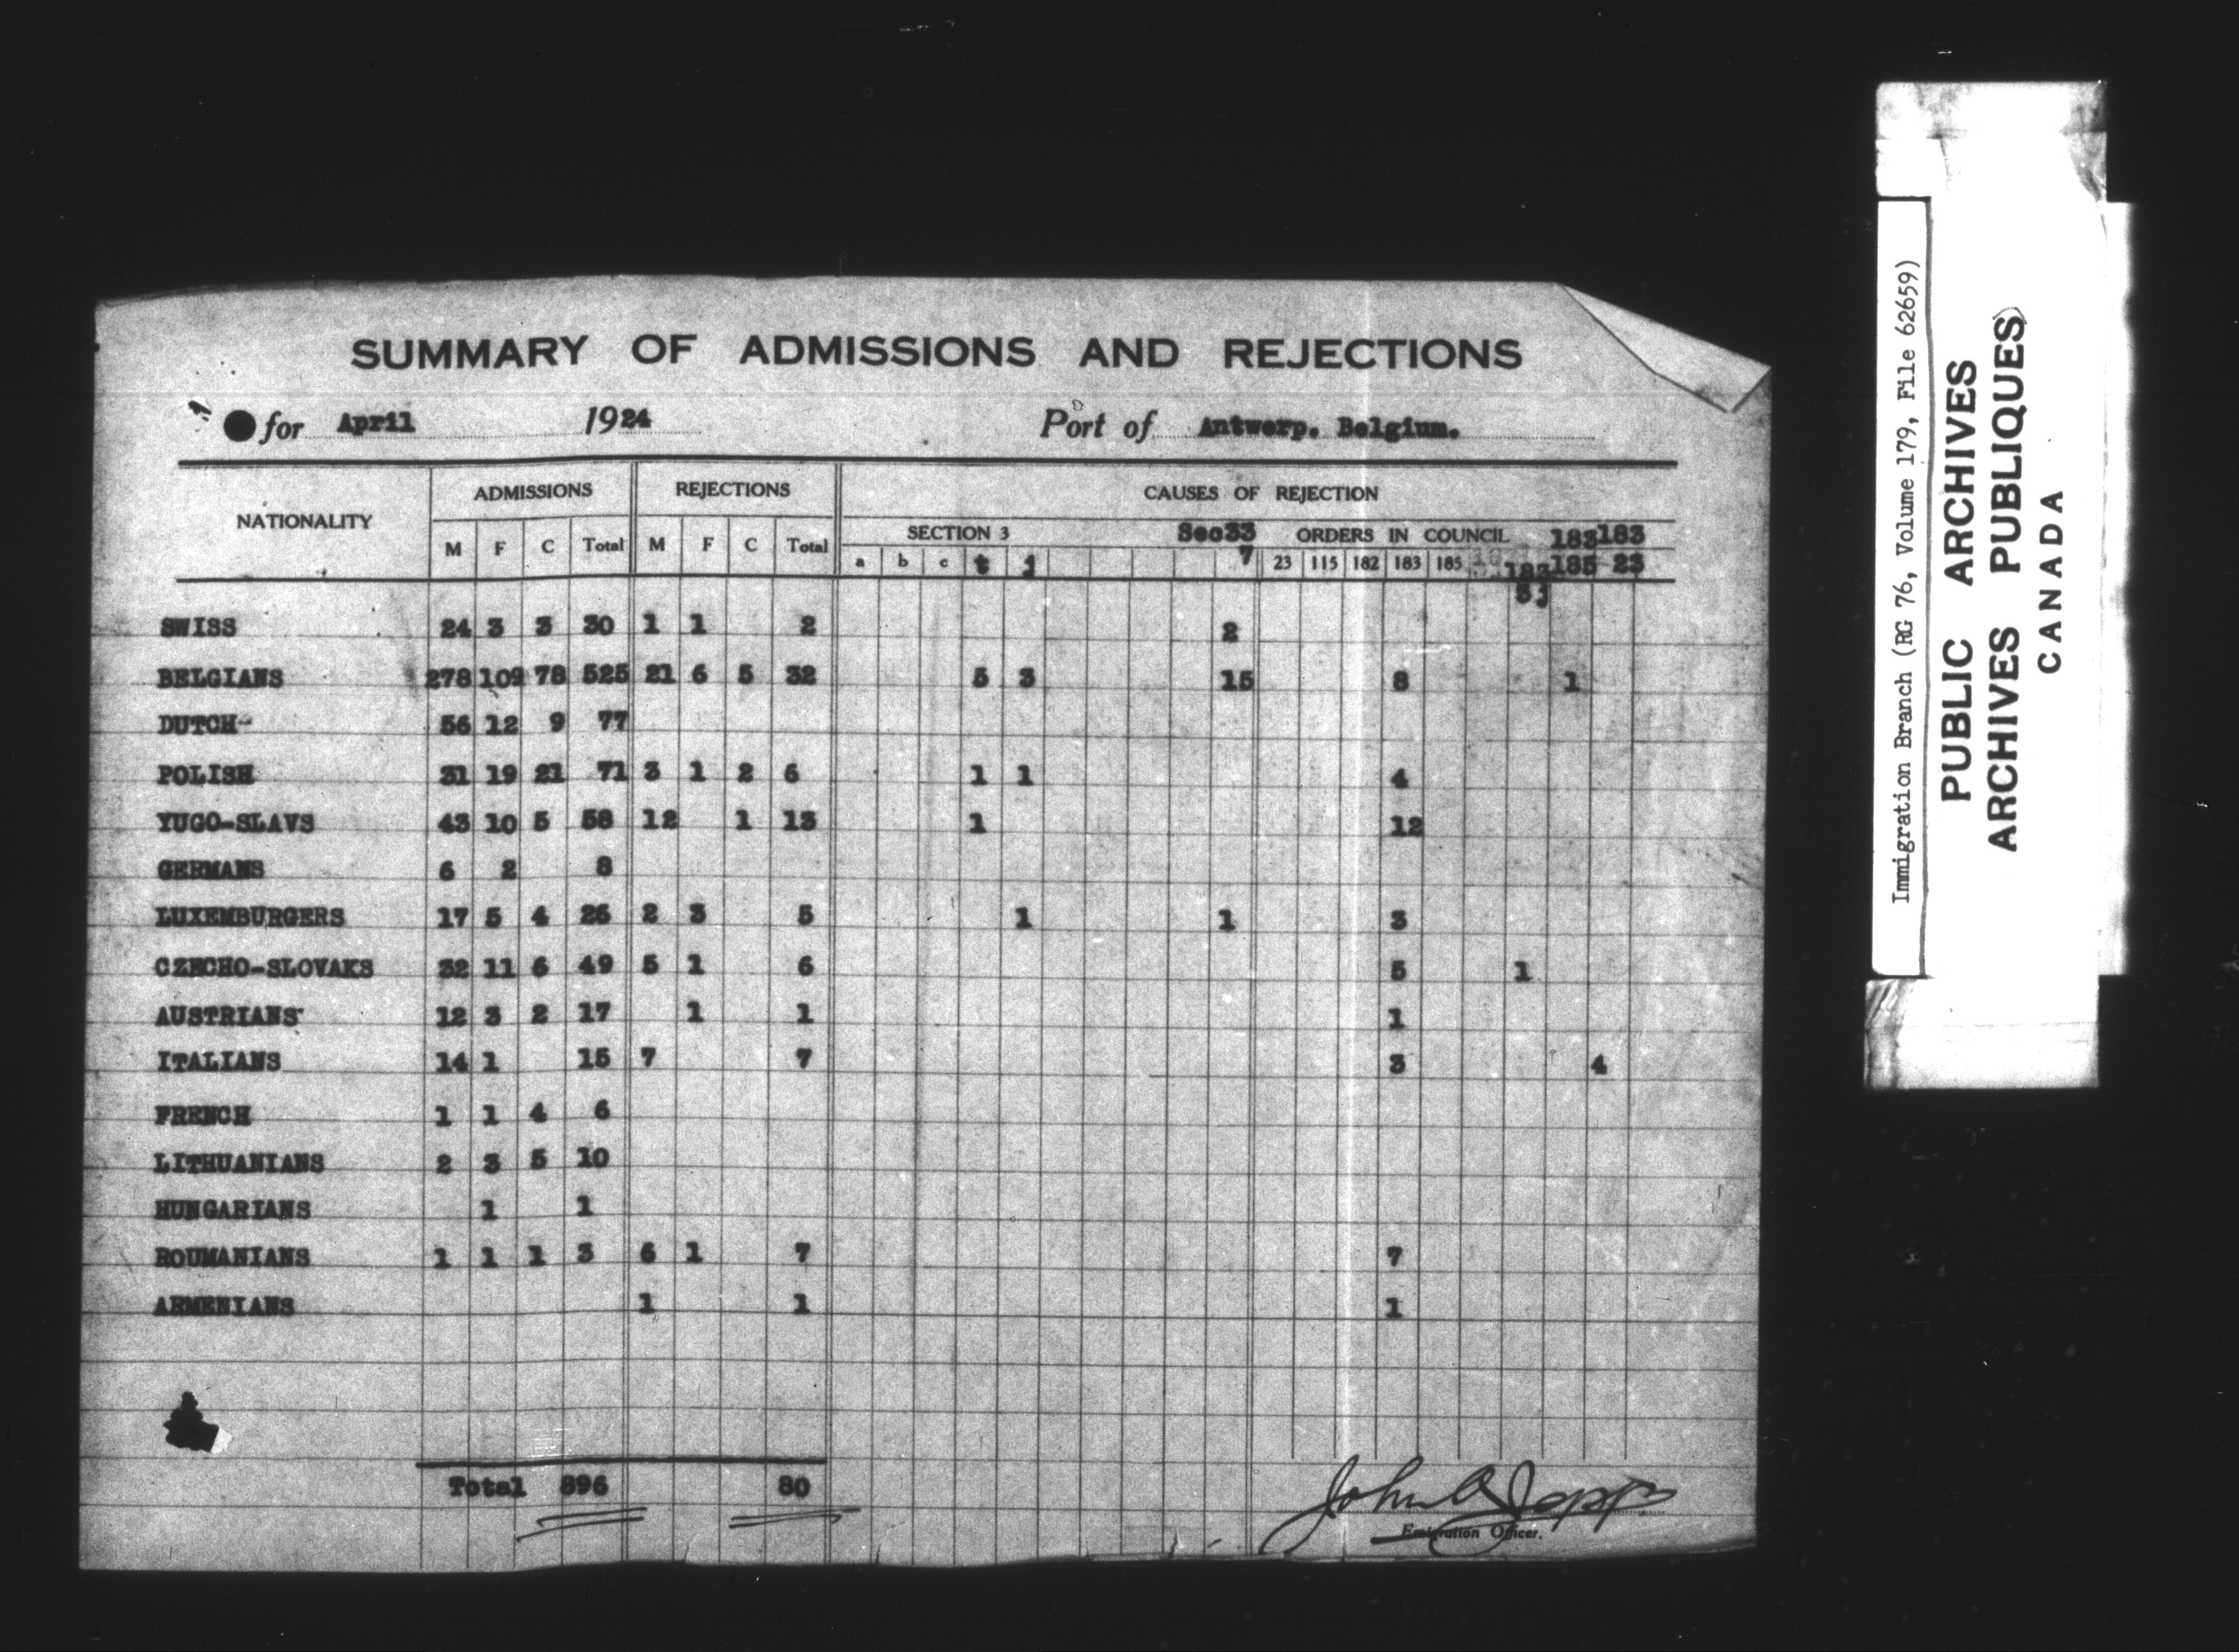 SUMMARY OF ADMISSIONS AND REJECTIONS
for April 1924 Port of Antwerp. Belgium.
NATIONALITY ADMISSIONS REJECTIONS CAUSES OF REJECTION
SECTION 3 Sec33 ORDERS IN COUNCIL 183 183
M F C Total M F C Total a b c t j 7 23 115 182 183 185 183 185 23
3j
SWISS 24 3 3 30 1 1 2 2
BELGIANS 278 109 78 525 21 6 5 32 5 3 15 8 1
DUTCH 56 12 9 77
POLISH 31 19 21 71 3 1 2 6 1 1 4
YUGO-SLAVS 43 10 5 58 12 1 13 1 12
GERMANS 6 2 8
LUXEMBURGERS 17 5 4 26 2 3 5 1 1 3
CZECHO-SLOVAKS 32 11 6 49 5 1 6 5 1
AUSTRIANS 12 3 2 17 1 1 1
ITALIANS 14 1 15 7 7 3 4
FRENCH 1 1 4 6
LITHUANIANS 2 3 5 10
HUNGARIANS 1 1
ROUMANIANS 1 1 1 3 6 1 7 7
ARMENIANS 1 1 1
Total 896 80
Emigration Officer.
Immigration Branch (RG 76, Volume 179, File 62659)
PUBLIC ARCHIVES
ARCHIVES PUBLIQUES
CANADA